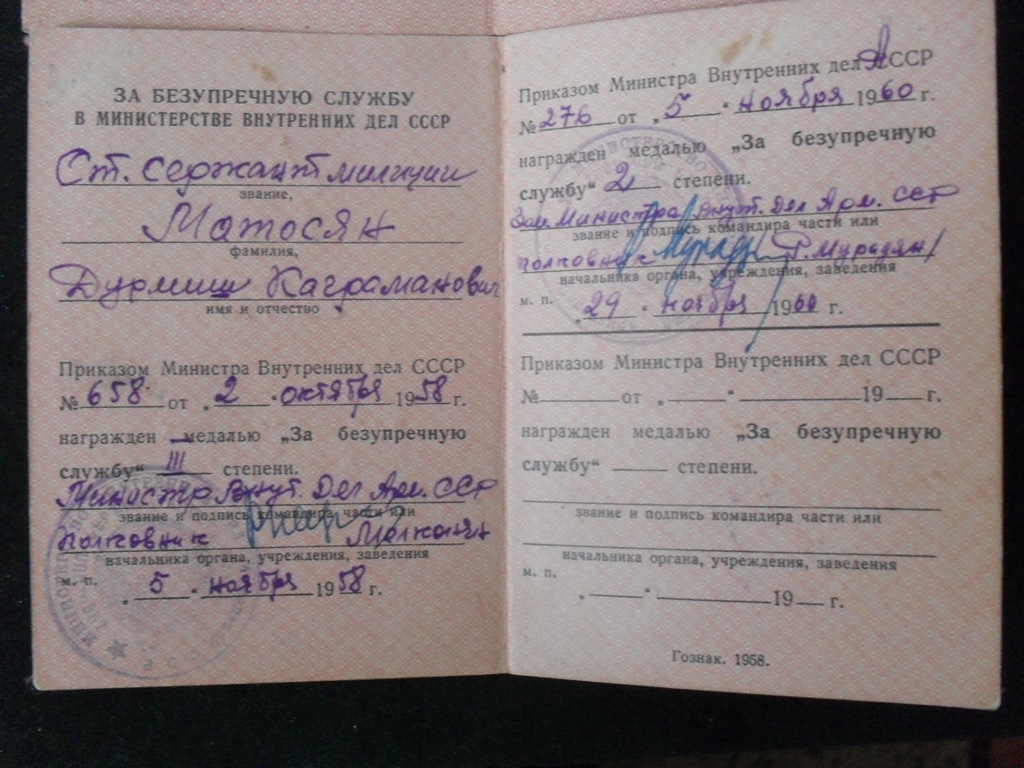 ЗА БЕЗУПРЕЧНУЮ СЛУЖБУ
В МИНИСТЕРСТВЕ ВНУТРЕННИХ ДЕЛ СССР
Ст. сержант милиции
звание,
Матосян
фамилия,
Дурмиш Каграманович
имя и отчество
Приказом Министра Внутренних дел СССР
№ 658 от „ 2 " октября 1958 г.
награжден медалью „За безупречную
службу“ III степени.
Министр Внут. Дел Арм. ССР
звание и подпись командира части или
полковник Мелконян
начальника органа, учреждения, заведения
м. п.
„ 5 " ноября 1958 г.
Приказом Министра Внутренних дел А ССР
№ 276 от „ 5 " ноября 1960 г.
награжден медалью „За безупречную
службу“ 2 степени.
Зам. Министра Внут. Дел Арм. ССР
звание и подпись командира части или
полковник /Г. Мурадян/
начальника органа, учреждения, заведения
м. п.
„ 29 " ноября 1960 г.
Приказом Министра Внутренних дел СССР
№ от „ " 19 г.
награжден медалью „За безупречную
службу“ степени.
звание и подпись командира части или
начальника органа, учреждения, заведения
м. п.
„ " 19 г.
Гознак. 1958.